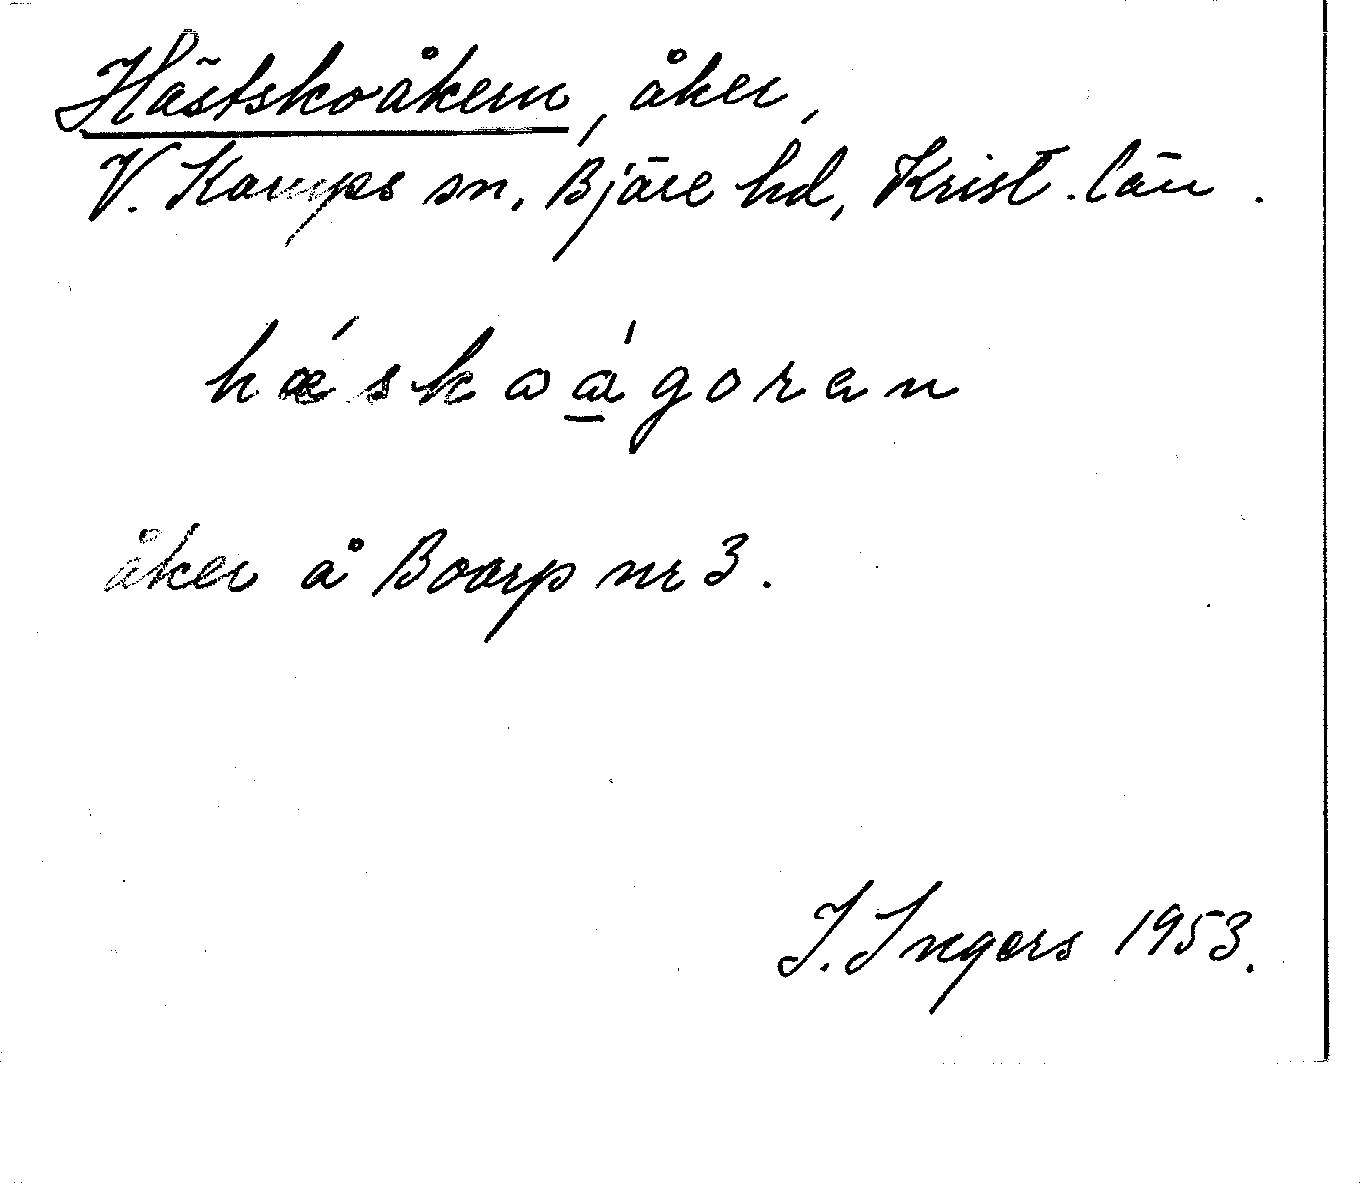 Hästskoåkern, åker,
V. Karups sn, Bjäre hd, Krist. län.
håker å Boarp nr 3.
I. Ingers 1953.